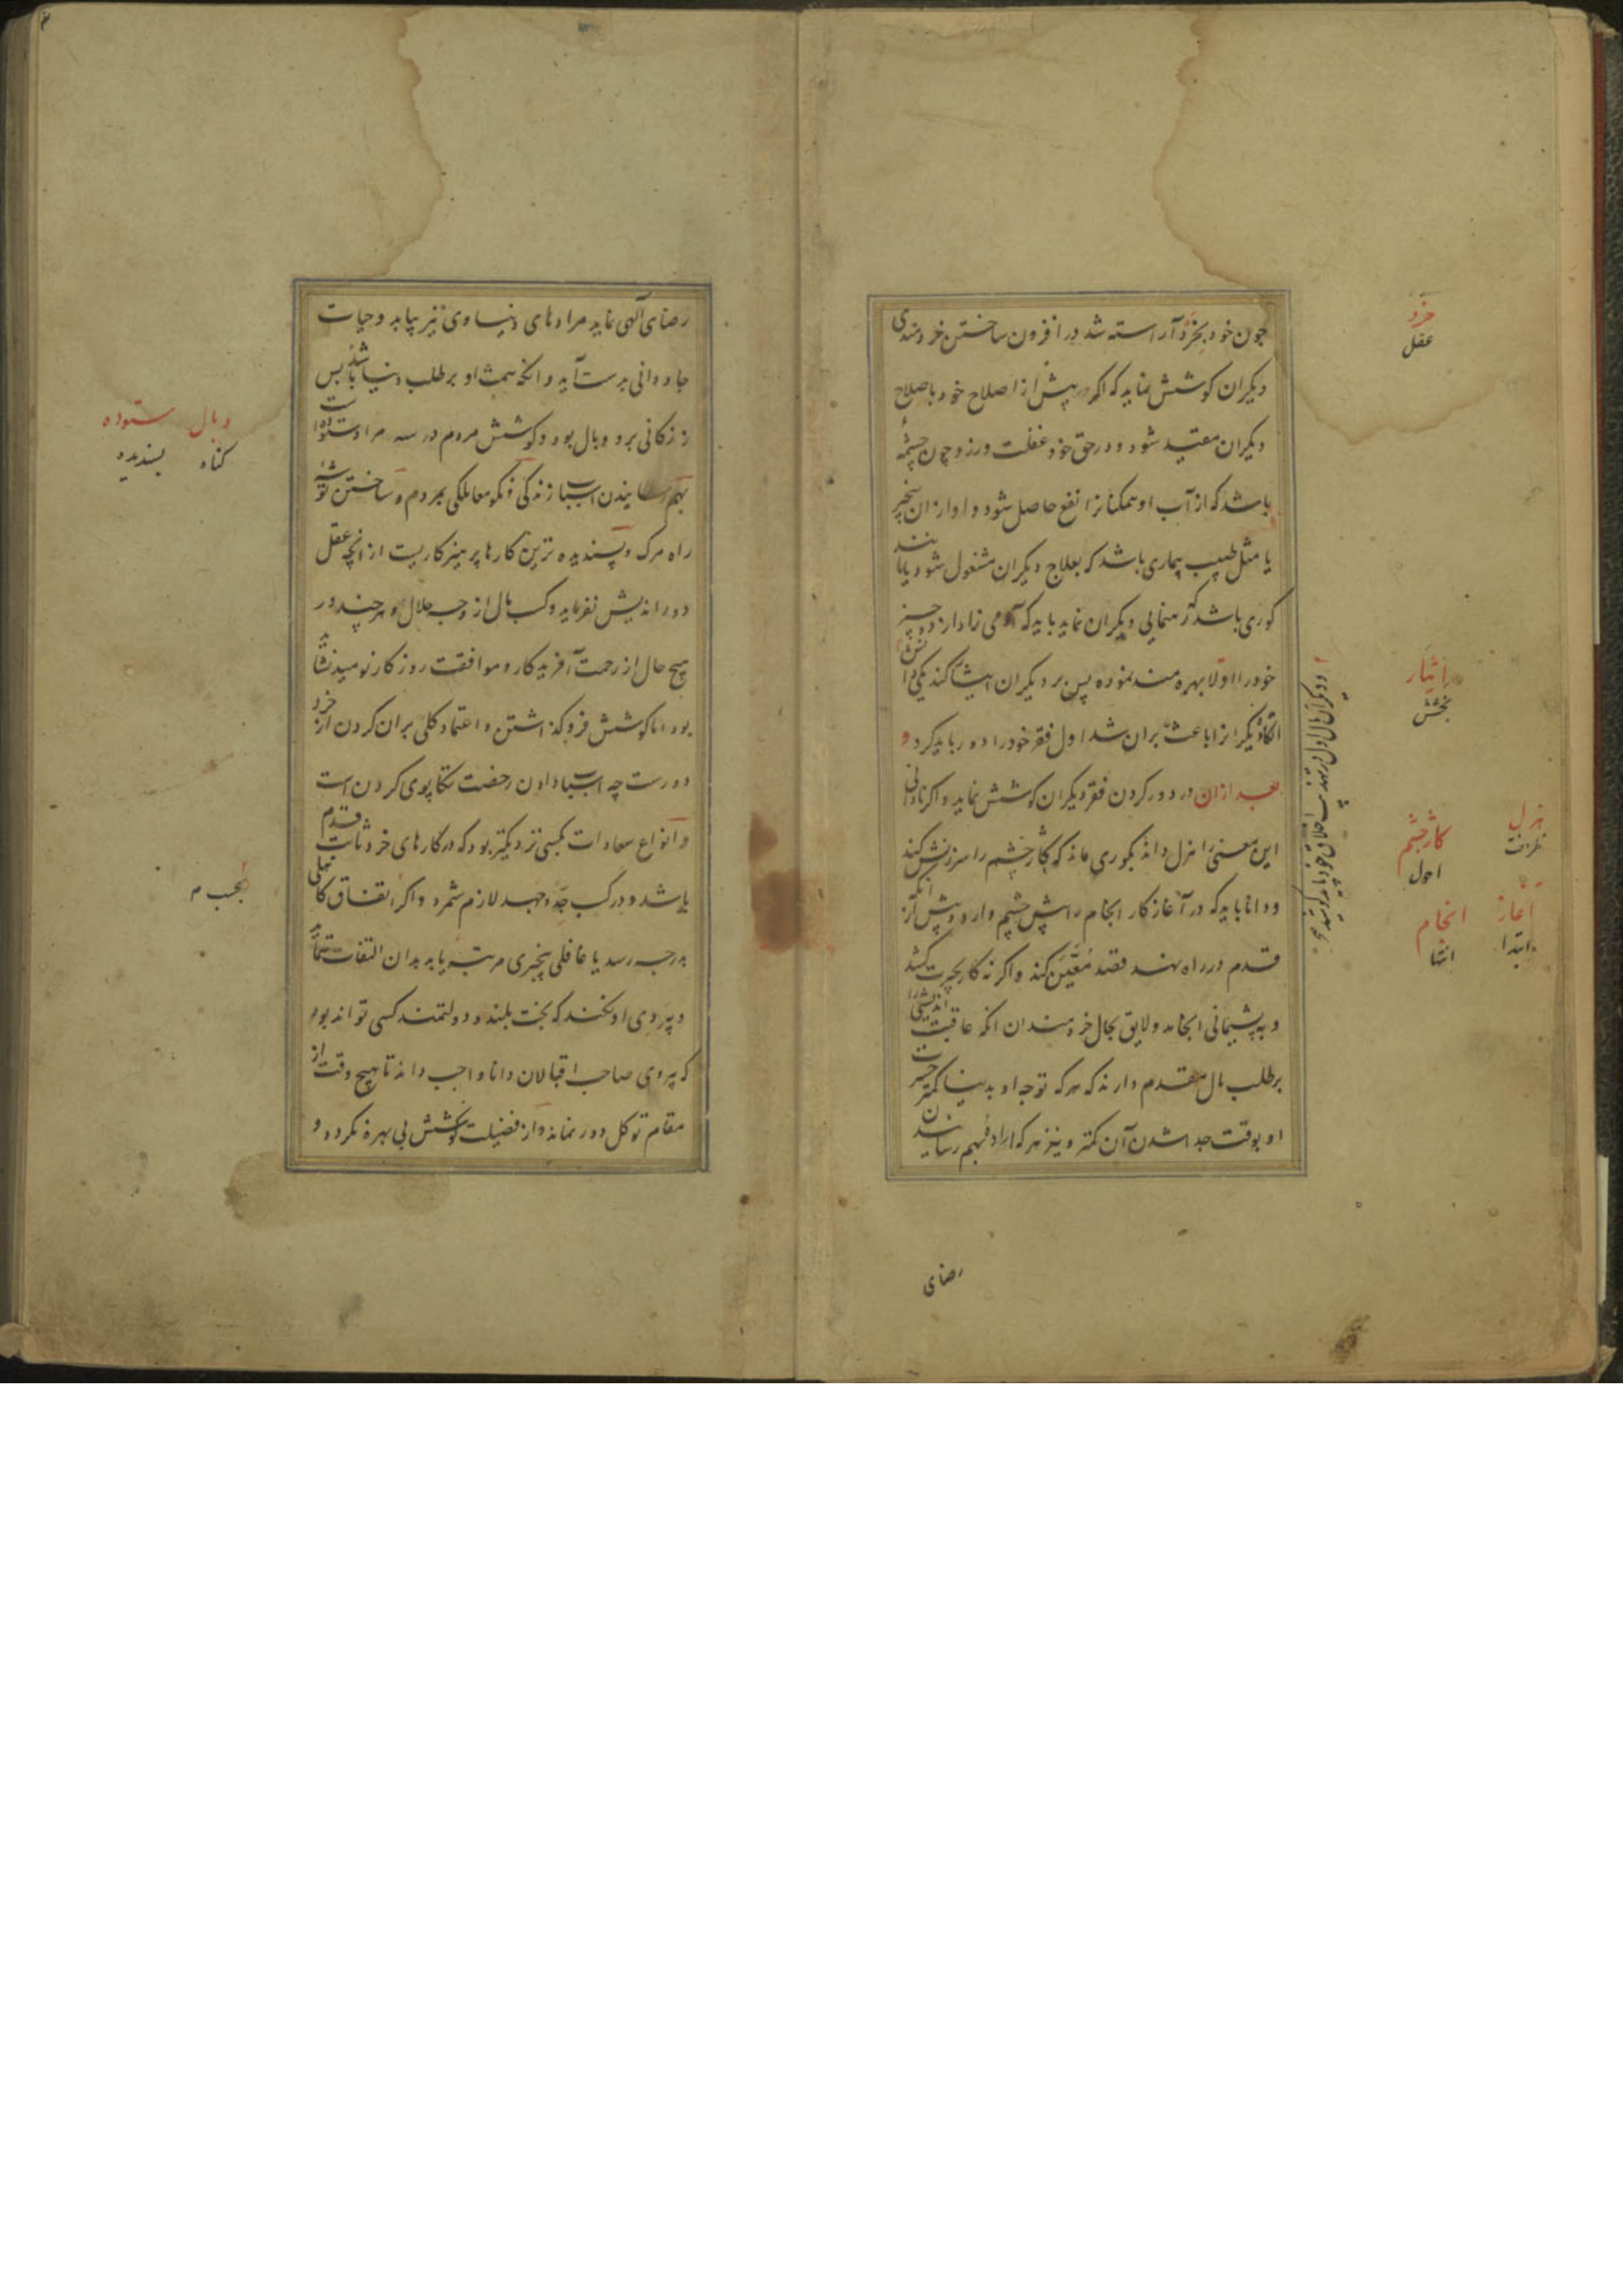 چون خود بخرد آراسته شد در افزون ساختن خردمندی
دیکران کوشش نماید که اکر پیش از اصلاح خود باصلاح
دیکران مقید شود و در حق خود غفلت ورزد چون چشمهٔ
باشد که از آب او همکنانرا نفع حاصل شود و او ازان بیخبر
یا مثل طبیب بیماری باشد که بعلاج دیکران مشغول شود یا مانند
کوری باشد که رهنمایی دیکران نماید باید که آدمی زاد از دو چیز
خود را اولا بهره مند نموده پس بر دیکران ایثار کند یکی دانش
دیکرانرا باعث بران شد اول فقر خود را دور باید کرد و
بعد ازان در دور کردن فقر دیکران کوشش نماید و اکر نادانی
این معنی را هزل داند بکوری ماند که کاژ چشم را سرزنش کند
و دانا باید که در آغاز کار انجام را پیش چشم دارد و پیش از آنکه
قدم در راه نهد قصد معین کند و اکر نه کار بحیرت کشد
و به پشیمانی انجامد و لایق بحال خردمندان انکه عاقبت اندیشی را
بر طلب مال مقدم دارند که هر که توجه او بدنیا کمتر حسرت
او بوقت جدا شدن آن کمتر و نیز هر که اراده بهم رسانیدن
رضای
خرد
عقل
ایثار
بخشش
هزل
ظرافت
کاژ چشم
احول
آغاز
ابتدا
انجام
انتها
رضای آلهی نماید مرادهای دنیاوی نیز بیابد و حیات
جاودانی بدست آید و انکه همت او بر طلب دنیا باشد پس
زندکانی برو وبال بود و کوشش مردم در سه مراد ستوده است
بهم رسانیدن اسباب زندکی و نکو معاملکی بمردم و ساختن توشهٔ
راه مرک و پسندیده ترین کارها پرهیزکاریست از انچه عقل
دور اندیش نفرماید و کسب مال از وجه حلال و هر چند در
هیچ حال از رحمت آفریدکار و موافقت روزکار نومید نشاید
بود اما کوشش فروکذاشتن و اعتماد کلی بران کردن از خرد
دورست چه اسباب دادن رخصت تکاپوی کردن است
و انواع سعادات بکسی نزدیکتر بود که در کارهای خرد ثابت قدم
باشد و در کسب جد و جهد لازم شمرد و اکر اتفاق کاهلی
بدرجه رسد یا غافلی بیخبری مرتبه یابد بدان التفات ننماید
و پیروی او نکند که بخت بلند و دولتمند کسی تواند بود
که پیروی صاحب اقبالان دانا واجب داند تا هیچ وقت از
مقام توکل دور نماند و از فضیلت کوشش بی بهره نکردد و
وبال
کناه
ستوده
پسندیده